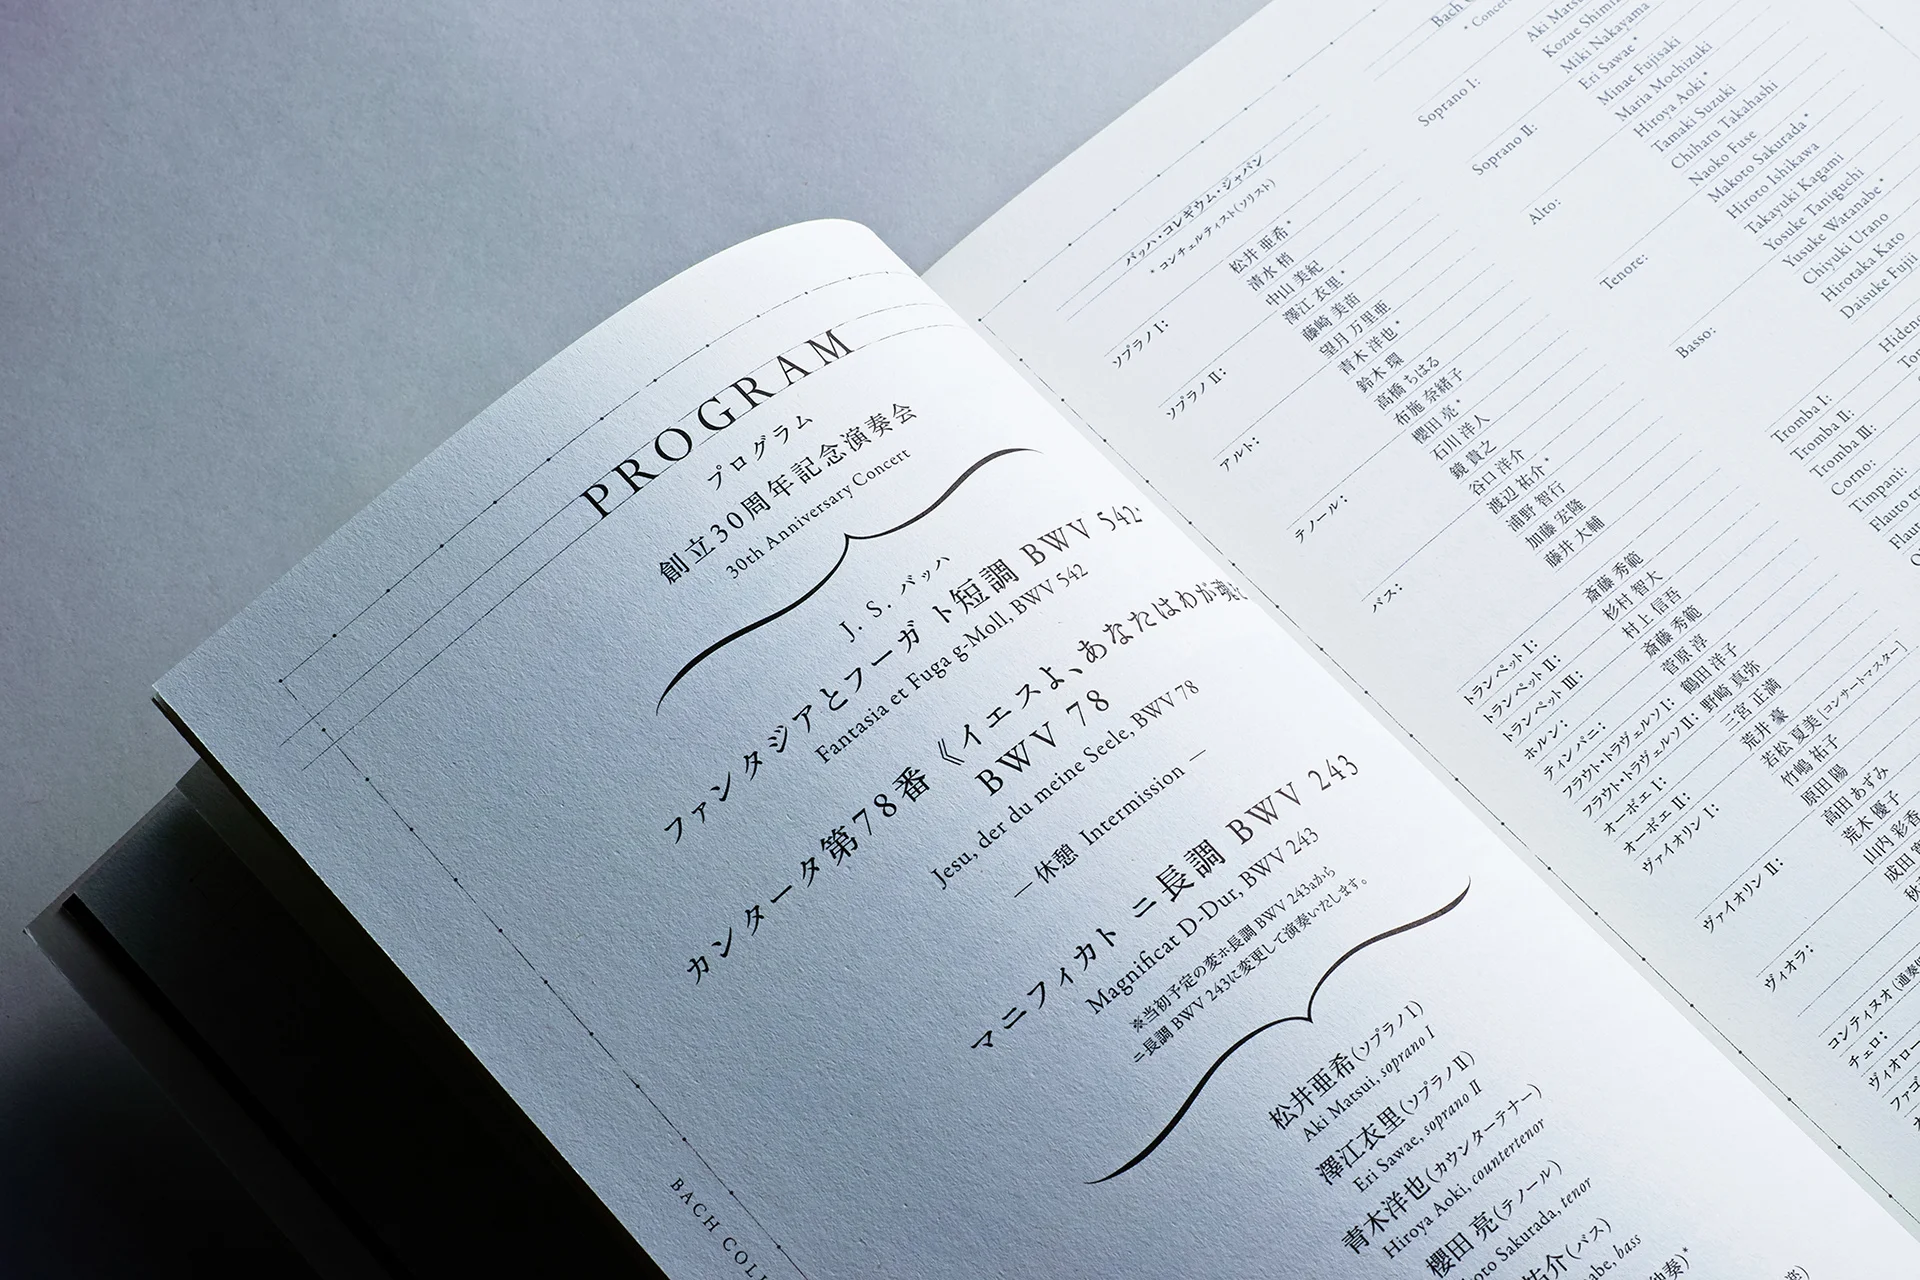 PROGRAM
プログラム
創立30周年記念演奏会
30th Anniversary Concert
J. S. バッハ
ファンタジアとフーガ ト短調 BWV 542
Fantasia et Fuga g-Moll, BWV 542
カンタータ第78番《イエスよ、あなたはわが魂を
BWV 78
Jesu, der du meine Seele, BWV 78
— 休憩 Intermission —
マニフィカト ニ長調 BWV 243
Magnificat D-Dur, BWV 243
※当初予定の変ホ長調 BWV 243aから
ニ長調 BWV 243に変更して演奏いたします。
松井亜希(ソプラノ I)
Aki Matsui, soprano I
澤江衣里(ソプラノ II)
Eri Sawae, soprano II
青木洋也(カウンターテナー)
Hiroya Aoki, countertenor
櫻田 亮(テノール)
Sakurada, tenor
祐介(バス)
bass
BACH
バッハ・コレギウム・ジャパン
* コンチェルティスト(ソリスト)
ソプラノ I: 松井 亜希*
清水 梢
中山 美紀
ソプラノ II: 澤江 衣里*
藤崎 美苗
望月 万里亜
アルト: 青木 洋也*
鈴木 環
高橋 ちはる
布施 奈緒子
テノール: 櫻田 亮*
石川 洋人
鏡 貴之
谷口 洋介
バス: 渡辺 祐介*
浦野 智行
加藤 宏隆
藤井 大輔
トランペット I: 斎藤 秀範
トランペット II: 杉村 智大
トランペット III: 村上 信吾
ホルン: 斎藤 秀範
ティンパニ: 菅原 淳
フラウト・トラヴェルソ I: 鶴田 洋子
フラウト・トラヴェルソ II: 野崎 真弥
オーボエ I: 三宮 正満
オーボエ II: 荒井 豪
ヴァイオリン I: 若松 夏美 [コンサートマスター]
竹嶋 祐子
原田 陽
ヴァイオリン II: 高田 あずみ
荒木 優子
山内 彩香
ヴィオラ: 成田
コンティヌオ
チェロ:
Bach
Soprano I: Aki
Kozue
Miki Nakayama
Soprano II: Eri Sawae*
Minae Fujisaki
Maria Mochizuki
Alto: Hiroya Aoki*
Tamaki Suzuki
Chiharu Takahashi
Naoko Fuse
Tenore: Makoto Sakurada*
Hiroto Ishikawa
Takayuki Kagami
Yosuke Taniguchi
Basso: Yusuke Watanabe*
Chiyuki Urano
Hirotaka Kato
Daisuke Fujii
Tromba I:
Tromba II:
Tromba III:
Corno:
Timpani:
Flauto